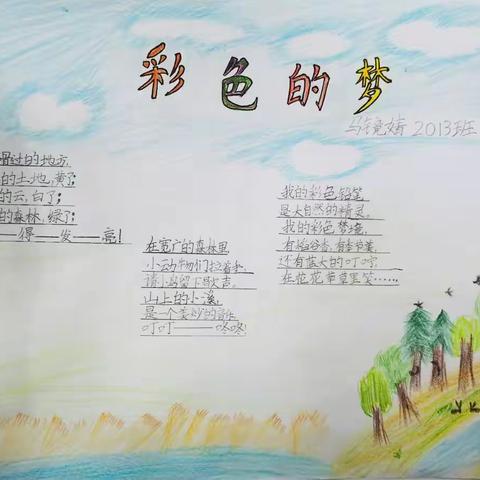 彩色的梦
2013班
滑过的地方,
的土地,黄了;
的云,白了;
的森林,绿了;
——得——发——亮!
在宽广的森林里
小动物们拉着手,
请小鸟留下歌声。
山上的小溪,
是一个美妙的音乐
叮叮——咚咚!
我的彩色铅笔
是大自然的精灵。
我的彩色梦境,
有
还有
在花花草草里笑……